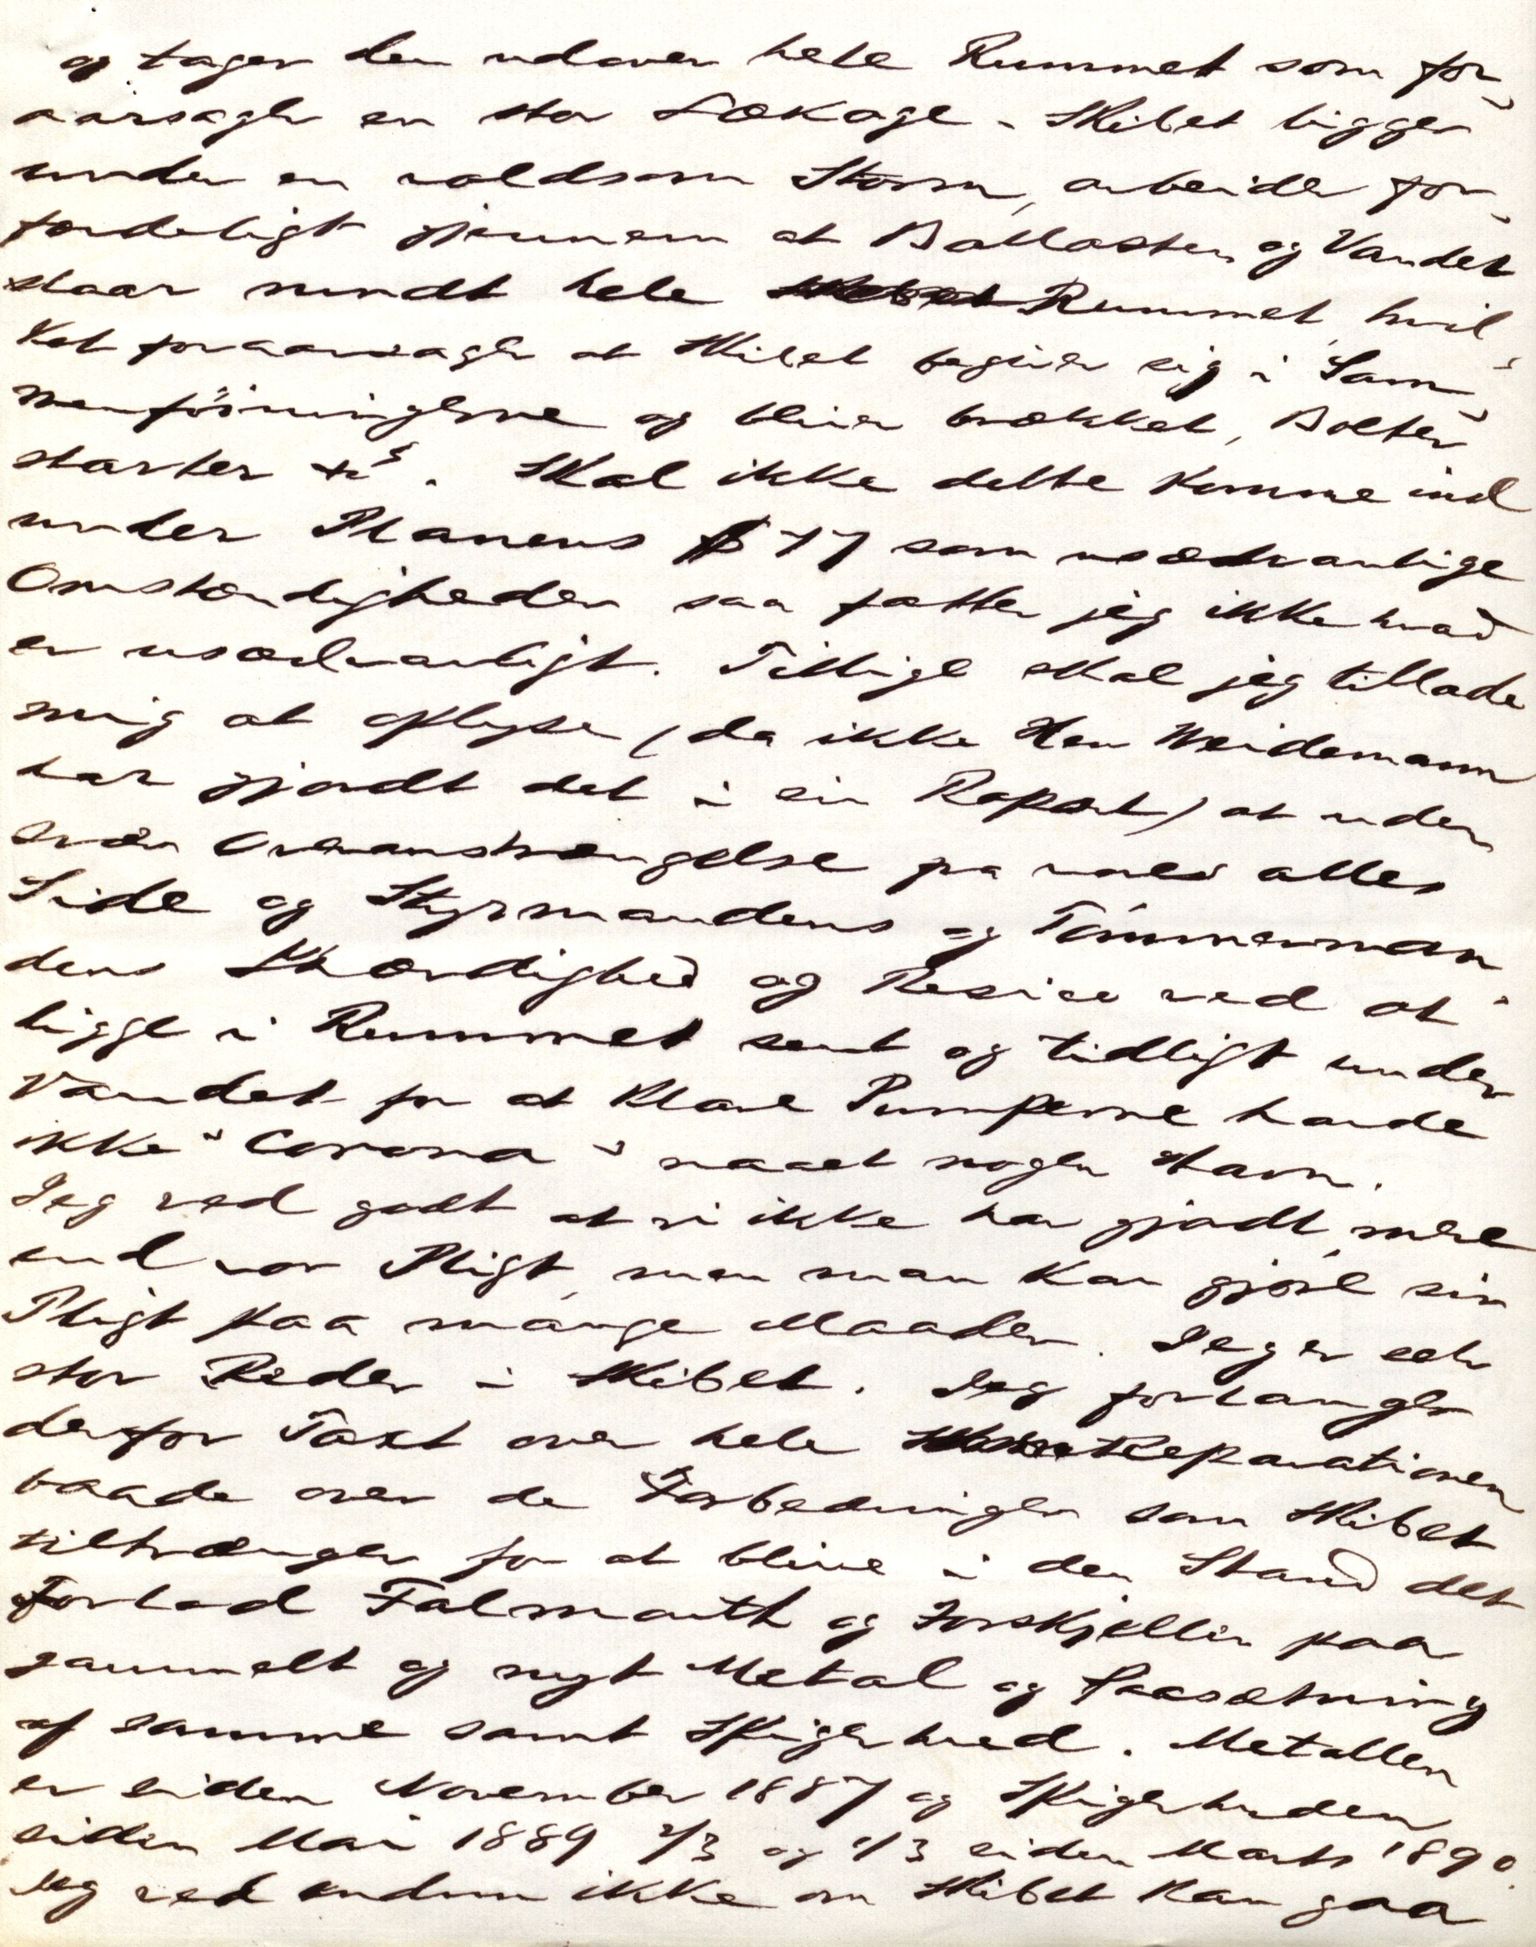 og tager den udover hele Rummet som for„
aarsager en stor Lækage. Skibet ligger
under en voldsom Storm, arbeider for„
færdeligt gjennem at Ballasten og Vandet
staar rundt hele Rummet, hvil„
ket foraarsager at Skibet begiver sig i Sam„
menføiningerne og bliver brækket, Bolter
starter &c. Skal ikke dette komme ind
under Planens § 17 som usædvanlige
Omstændigheder saa fatter jeg ikke hvad
er usædvanligt. Tillige skal jeg tillade
mig at oplyse (da ikke Herr Weidemann
har gjordt det i sin Raport) at uden
svær Overanstrængelse fra vores alles
Side og Styrmandens og Tømmerman„
dens Ihærdighed og Resico ved at
ligge i Rummet sent og tidligt under
Vandet for at klare Pumperne havde
ikke "Corona" naaet nogen Havn.
Jeg ved godt at vi ikke har gjordt mere
end vor Pligt, men man kan gjøre sin
Pligt paa mange Maader. Jeg er selv
stor Reder i Skibet. Jeg forlanger
derfor Taxt over hele Reparationen
baade over de Forbedringer som Skibet
tiltrænger for at blive i den Stand det
forlod Falmouth og Forskjellen paa
gammelt og nyt Metal og Paasætning
af samme samt Spigerhud. Metallen
er siden November 1887 og Spigerhuden
siden Mai 1889 2/3 og 1/3 siden Marts 1890.
Jeg ved endnu ikke om Skibet kan gaa